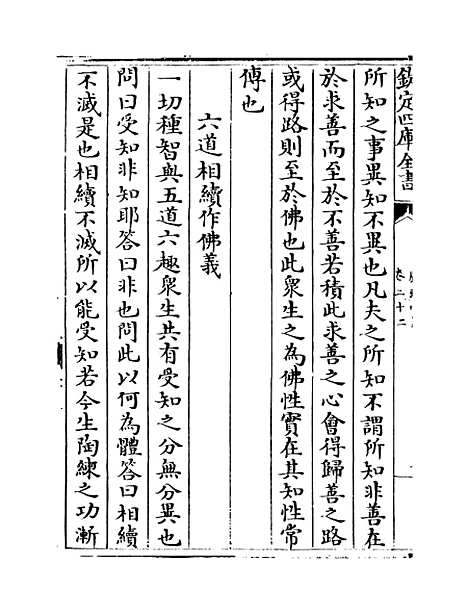 欽定四庫全書
卷二十二
所知之事異知不異也凡夫之所知不謂所知非善在
於求善而至於不善若積此求善之心會得歸善之路
或得路則至於佛也此衆生之為佛性實在其知性常
傳也
六道相續作佛義
一切種智與五道六趣衆生共有受知之分無分異也
問曰受知非知耶答曰非也問此以何為體答曰相續
不滅是也相續不滅所以能受知若今生陶練之功漸